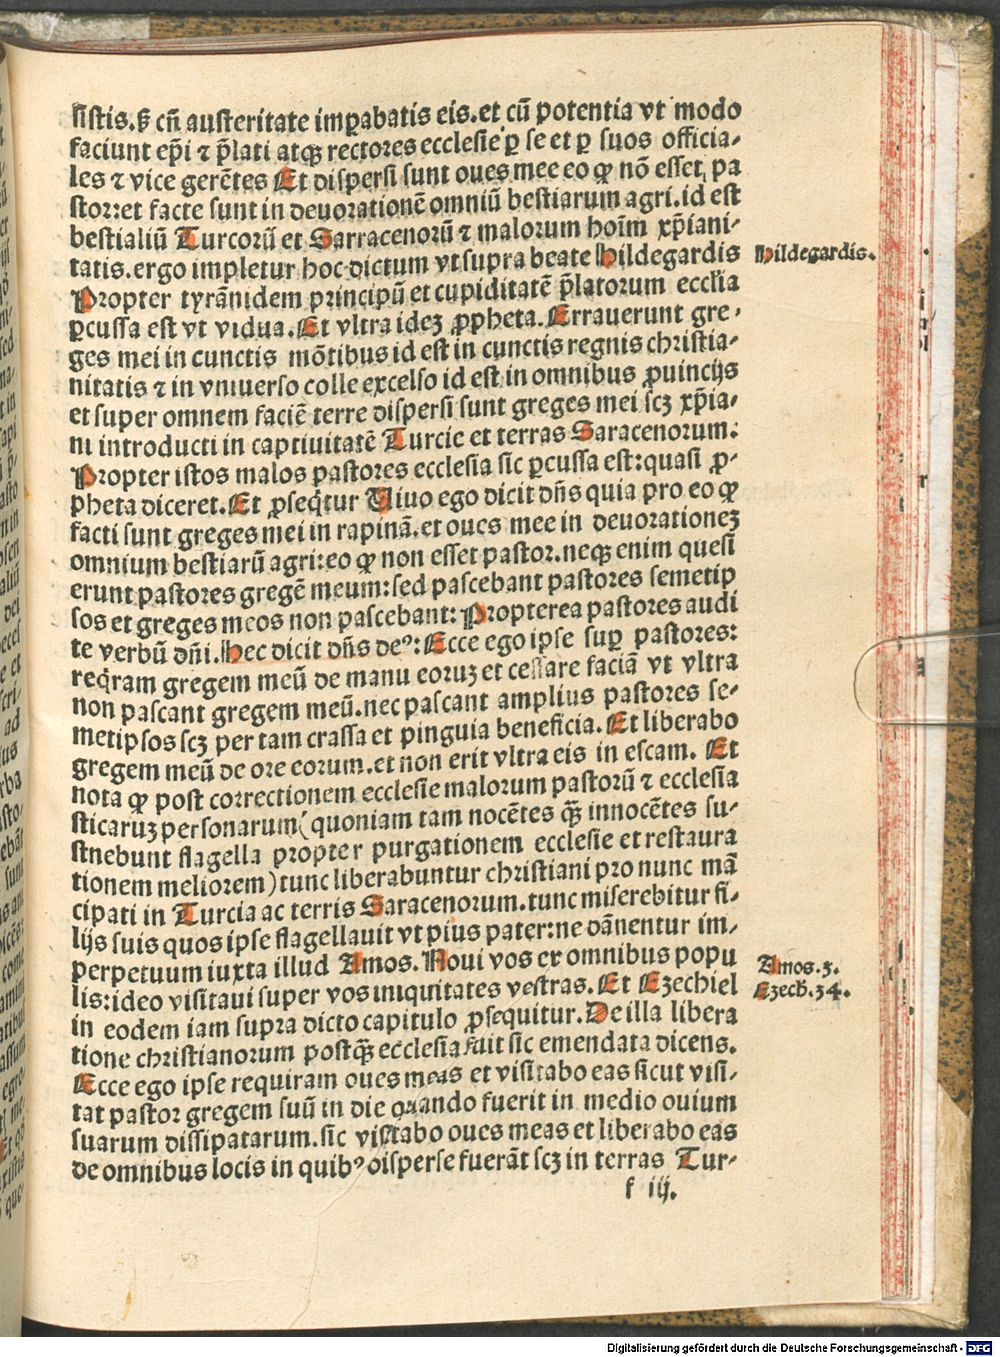 sistis.sꝫ cū austeritate imꝑabatis eis.et cū potentia vt modo
faciunt epi ⁊ p̄lati atqꝫ rectores ecclesie ꝑ se et ꝑ suos officia-
les ⁊ vice gerētes Et dispersi sunt oues mee eo ꝙ nō esset pa
stor:et facte sunt in deuorationē omniū bestiarum agri.id est
bestialiū Turcorū et Sarracenorū ⁊ malorum hoīm xp̄iani-
tatis.ergo impletur hoc dictum vt supra beate Hildegardis
Hildegardis.
Propter tyrānidem principū et cupiditatē p̄latorum ecclīa
ꝑcussa est vt vidua.Et vltra ideꝫ ꝓpheta.Errauerunt gre-
ges mei in cunctis mōtibus id est in cunctis regnis christia-
nitatis ⁊ in vniuerso colle excelso id est in omnibus ꝓuincijs
et super omnem faciē terre dispersi sunt greges mei scꝫ xp̄ia-
ni introducti in captiuitatē Turcie et terras Saracenorum:
Propter istos malos pastores ecclesia sic ꝑcussa est:quasi ꝓ-
pheta diceret.Et ꝓseqt̄ur Uiuo ego dicit dn̄s quia pro eo ꝙ
facti sunt greges mei in rapinā.et oues mee in deuorationeꝫ
omnium bestiarū agri:eo ꝙ non esset pastor.neqꝫ enim quesi
erunt pastores gregē meum:sed pascebant pastores semetip
sos et greges meos non pascebant: Propterea pastores audi
te verbū dn̄i.Hec dicit dn̄s deꝰ: Ecce ego ipse suꝑ pastores:
req̄ram gregem meū de manu eoruꝫ et cessare faciā vt vltra
non pascant gregem meū.nec pascant amplius pastores se-
metipsos scꝫ per tam crassa et pinguia beneficia. Et liberabo
gregem meū de ore eorum.et non erit vltra eis in escam. Et
nota ꝙ post correctionem ecclesie malorum pastorū ⁊ ecclesia
sticaruꝫ personarum(quoniam tam nocētes qꝫ̄ innocētes su-
stnebunt flagella propter purgationem ecclesie et restaura
tionem meliorem)tunc liberabuntur christiani pro nunc mā
cipati in Turcia ac terris Saracenorum.tunc miserebitur fi-
lijs suis quos ipse flagellauit vt pius pater:ne dānentur im-
perpetuum iuxta illud Amos. Noui vos ex omnibus popu
Amos.3.
lis:ideo visitaui super vos iniquitates vestras. Et Ezechiel
Ezech.34.
in eodem iam supra dicto capitulo ꝓsequitur.De illa libera
tione christianorum postqꝫ̄ ecclesia fuit sic emendata dicens.
Ecce ego ipse requiram oues meas et visitabo eas sicut visi-
tat pastor gregem suū in die quando fuerit in medio ouium
suarum dissipatarum.sic visitabo oues meas et liberabo eas
de omnibus locis in quibꝰ disperse fuerāt scꝫ in terras Tur-
f iij.
Digitalisierung gefördert durch die Deutsche Forschungsgemeinschaft - DFG